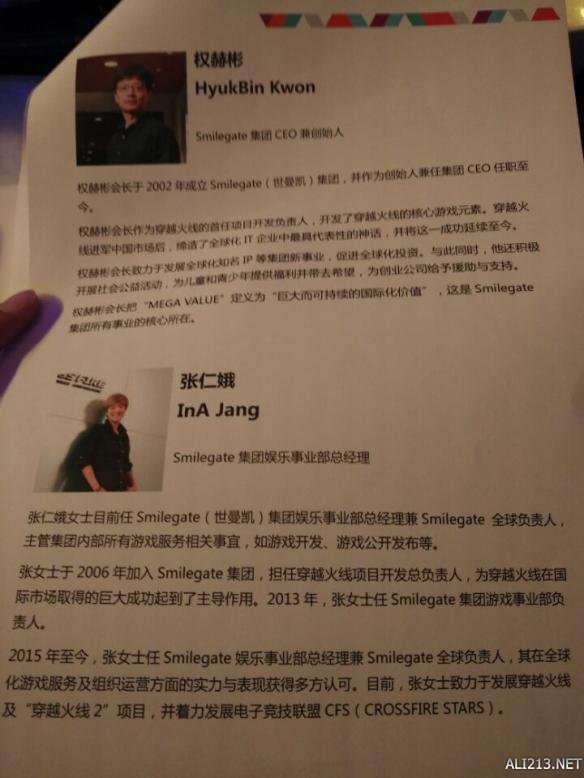 权赫彬
HyukBin Kwon
Smilegate 集团 CEO 兼创始人
权赫彬会长于 2002 年成立 Smilegate（世曼凯）集团，并作为创始人兼任集团 CEO 任职至
今。
权赫彬会长作为穿越火线的首任项目开发负责人，开发了穿越火线的核心游戏元素。穿越火
线进军中国市场后，缔造了全球化 IT 企业中最具代表性的神话，并将这一成功延续至今。
权赫彬会长致力于发展全球化知名 IP 等集团新事业，促进全球化投资。与此同时，他还积极
开展社会公益活动，为儿童和青少年提供福利并带去希望，为创业公司给予援助与支持。
权赫彬会长把“MEGA VALUE”定义为“巨大而可持续的国际化价值”，这是 Smilegate
集团所有事业的核心所在。
张仁娥
InA Jang
Smilegate 集团娱乐事业部总经理
张仁娥女士目前任 Smilegate（世曼凯）集团娱乐事业部总经理兼 Smilegate 全球负责人，
主管集团内部所有游戏服务相关事宜，如游戏开发、游戏公开发布等。
张女士于 2006 年加入 Smilegate 集团，担任穿越火线项目开发总负责人，为穿越火线在国
际市场取得的巨大成功起到了主导作用。2013 年，张女士任 Smilegate 集团游戏事业部负
责人。
2015 年至今，张女士任 Smilegate 娱乐事业部总经理兼 Smilegate 全球负责人，其在全球
化游戏服务及组织运营方面的实力与表现获得多方认可。目前，张女士致力于发展穿越火线
及“穿越火线 2”项目，并着力发展电子竞技联盟 CFS（CROSSFIRE STARS）。
ALI213.NET